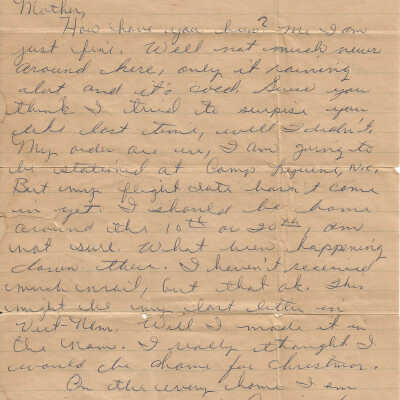 Mother,
How have you been? Me I am
just fine. Well not much new
around here, only it raining
alot and it's cool. Guess you
think I tried to surpise you
like last time, well I didn't.
My order are in, I am going to
be stationed at Camp Lejeune, N.C.
But my flight date havn't come
in yet. I should be home
around the 10th or 20th, am
not sure. What been happening
down there. I haven't receive
much mail, but that ok. This
might be my last letter in
Viet-Nam. Well I made it in
the Nam. I really thought I
would be home for Christmas.
On the way home I am